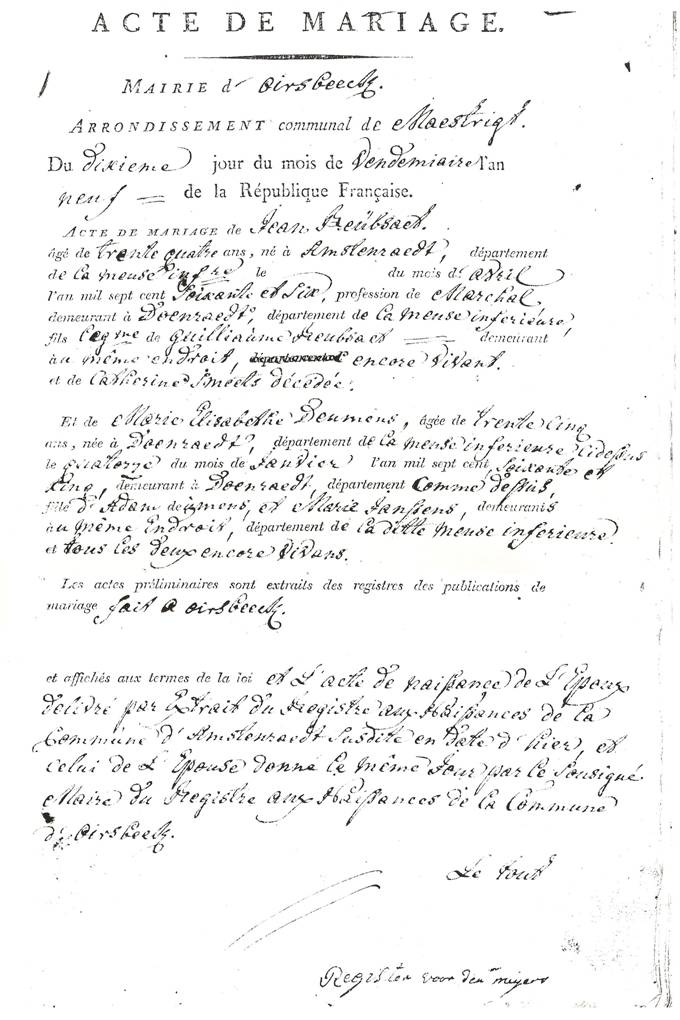 ACTE DE MARIAGE.
MAIRIE d' Oirsbeeck.
ARRONDISSEMENT communal de Maestrigt.
Du dixieme jour du mois de Vendemiaire l'an
neuf = de la République Française.
ACTE DE MARIAGE de Jean Reubsaet.
âgé de trente quatre ans, né à Amstenraedt, département
de la meuse infre le du mois d' avril
l'an mil sept cent Soixante et Six, profession de Marchal
demeurant à Doenraedt, département de la meuse inferieure,
fils legme de Guilliaume Reubsaet = demeurant
àu même endroit, encore vivant.
et de Catherine Smeets décédée.
Et de Marie Elisabethe Deumens, âgée de trente Cinq
ans, née à Doenraedt, département de la meuse inferieure Cidessus
le quatorze du mois de Janvier l'an mil sept cent Soixante et
Cinq, demeurant à Doenraedt, département Comme dessus,
fille d' Adam deumens, et Marie Janssens, demeurants
àu même Endroit, département de la ditte meuse inferieure
et tous les deux encore vivans.
Les actes préliminaires sont extraits des registres des publications de
mariage fait a oirsbeeck.
et affichés aux termes de la loi et L'acte de naissance de L'Epoux
delivré par Extrait du Registre aux Naissances de la
Commune d'Amstenraedt Susdite en date d'hier, et
celui de L'Epouse donné la même Jour par le Sousigné
Maire du Registre aux Naissances de la Commune
d'oirsbeeck.
Le tout
Register voor den meyers